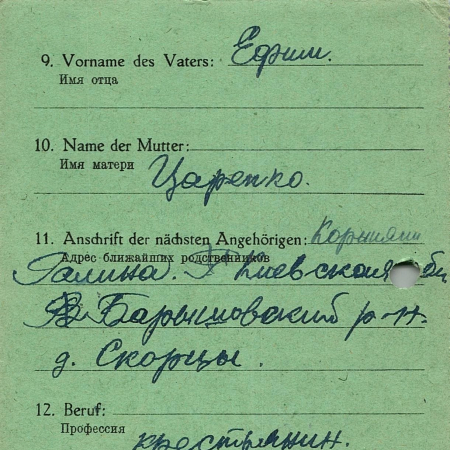 9. Vorname des Vaters: Ефим.
Имя отца
10. Name der Mutter:
Имя матери Царенко.
11. Anschrift der nächsten Angehörigen:
Адрес ближайших родственников
Галина. Киевская об
Барышовский р-н.
д. Скорцы.
12. Beruf:
Профессия крестьянин.